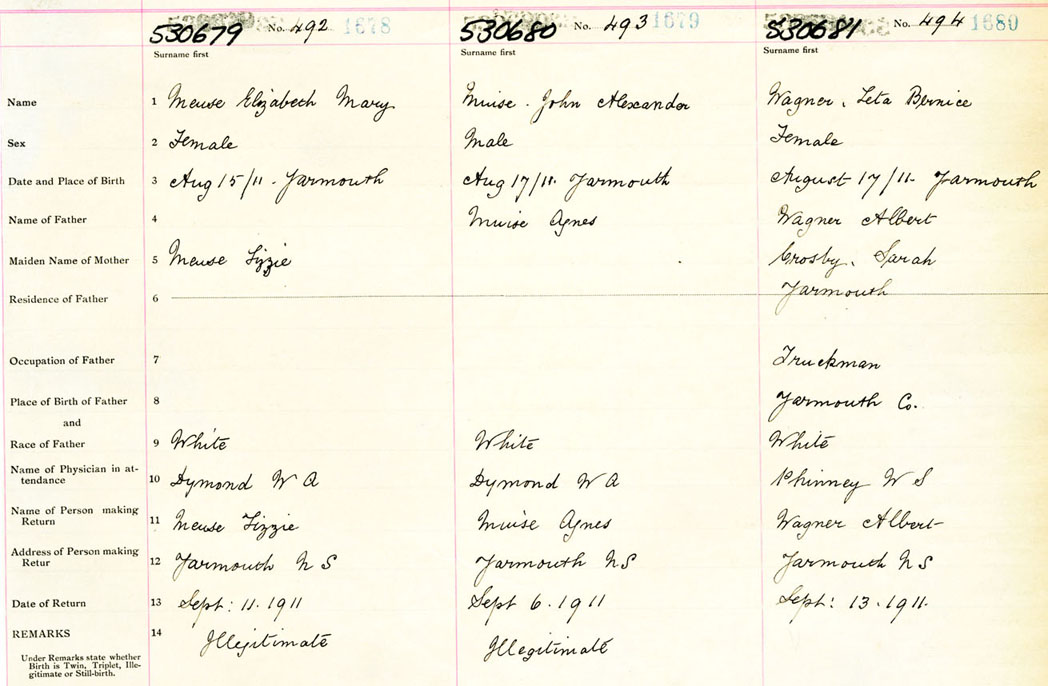 530679 No. 492 1678 530680 No. 493 1679 530681 No. 494 1680
Surname first Surname first Surname first
Name 1 Meuse Elizabeth Mary Muise. John Alexander Wagner, Leta Bernice
Sex 2 Female Male Female
Date and Place of Birth 3 Aug 15/11. Yarmouth Aug 17/11. Yarmouth August 17/11. Yarmouth
Name of Father 4 Muise Agnes Wagner Albert
Maiden Name of Mother 5 Meuse Lizzie Crosby, Sarah
Residence of Father 6 Yarmouth
Occupation of Father 7 Truckman
Place of Birth of Father 8 Yarmouth Co.
and
Race of Father 9 White White White
Name of Physician in at-
tendance 10 Dymond W A Dymond W A Phinney W S
Name of Person making
Return 11 Meuse Lizzie Muise Agnes Wagner Albert
Address of Person making
Retur 12 Yarmouth N S Yarmouth N S Yarmouth N S
Date of Return 13 Sept: 11. 1911 Sept 6. 1911 Sept: 13. 1911.
REMARKS 14 Illegitimate Illegitimate
Under Remarks state whether
Birth is Twin, Triplet, Ille-
gitimate or Still-birth.